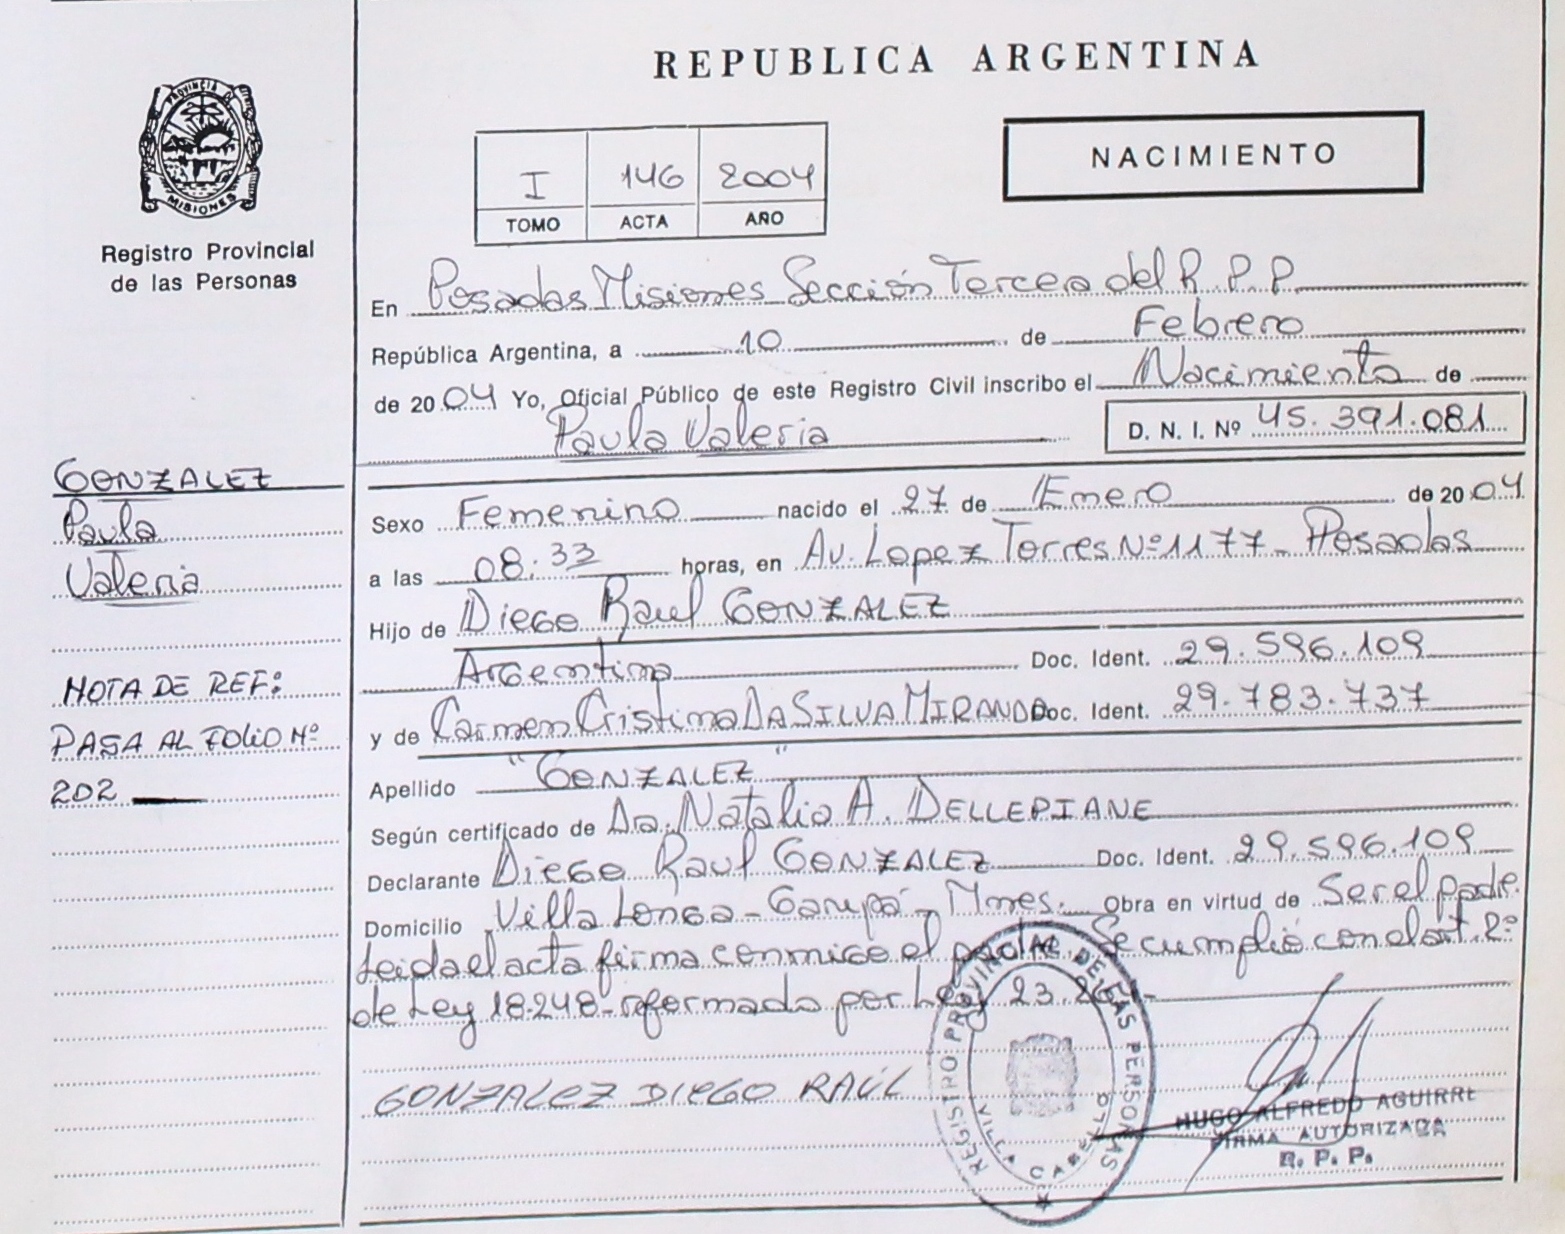 REPUBLICA ARGENTINA
PROVINCIA DE
MISIONES
Registro Provincial
de las Personas
NACIMIENTO
I 146 2004
TOMO ACTA AÑO
En Posadas Misiones Sección Tercera del R.P.P.
República Argentina, a 10 de Febrero
de 2004 Yo, Oficial Público de este Registro Civil inscribo el Nacimiento de
Paula Valeria D. N. I. Nº 45.391.081
GONZALEZ
Paula
Valeria
NOTA DE REF:
PASA AL FOLIO Nº
202
Sexo Femenino nacido el 27 de Enero de 2004
a las 08:33 horas, en Av. Lopez Torres Nº 1177 - Posadas
Hijo de Diego Raul GONZALEZ
Argentina Doc. Ident. 29.596.109
y de Carmen Cristina DA SILVA MIRANDA Doc. Ident. 29.783.737
Apellido "GONZALEZ"
Según certificado de Dra. Natalia A. DELLEPIANE
Declarante Diego Raul GONZALEZ Doc. Ident. 29.596.109
Domicilio Villa Longa - Garupá - Mnes. Obra en virtud de Ser el padre.
Leida el acta firma conmigo el padre. Se cumplió con el art. 2º
de Ley 18.248 - reformada por Ley 23.
GONZALEZ DIEGO RAÚL
REGISTRO PROVINCIAL DE LAS PERSONAS
VILLA CABELLO
HUGO ALFREDO AGUIRRE
FIRMA AUTORIZADA
R. P. P.